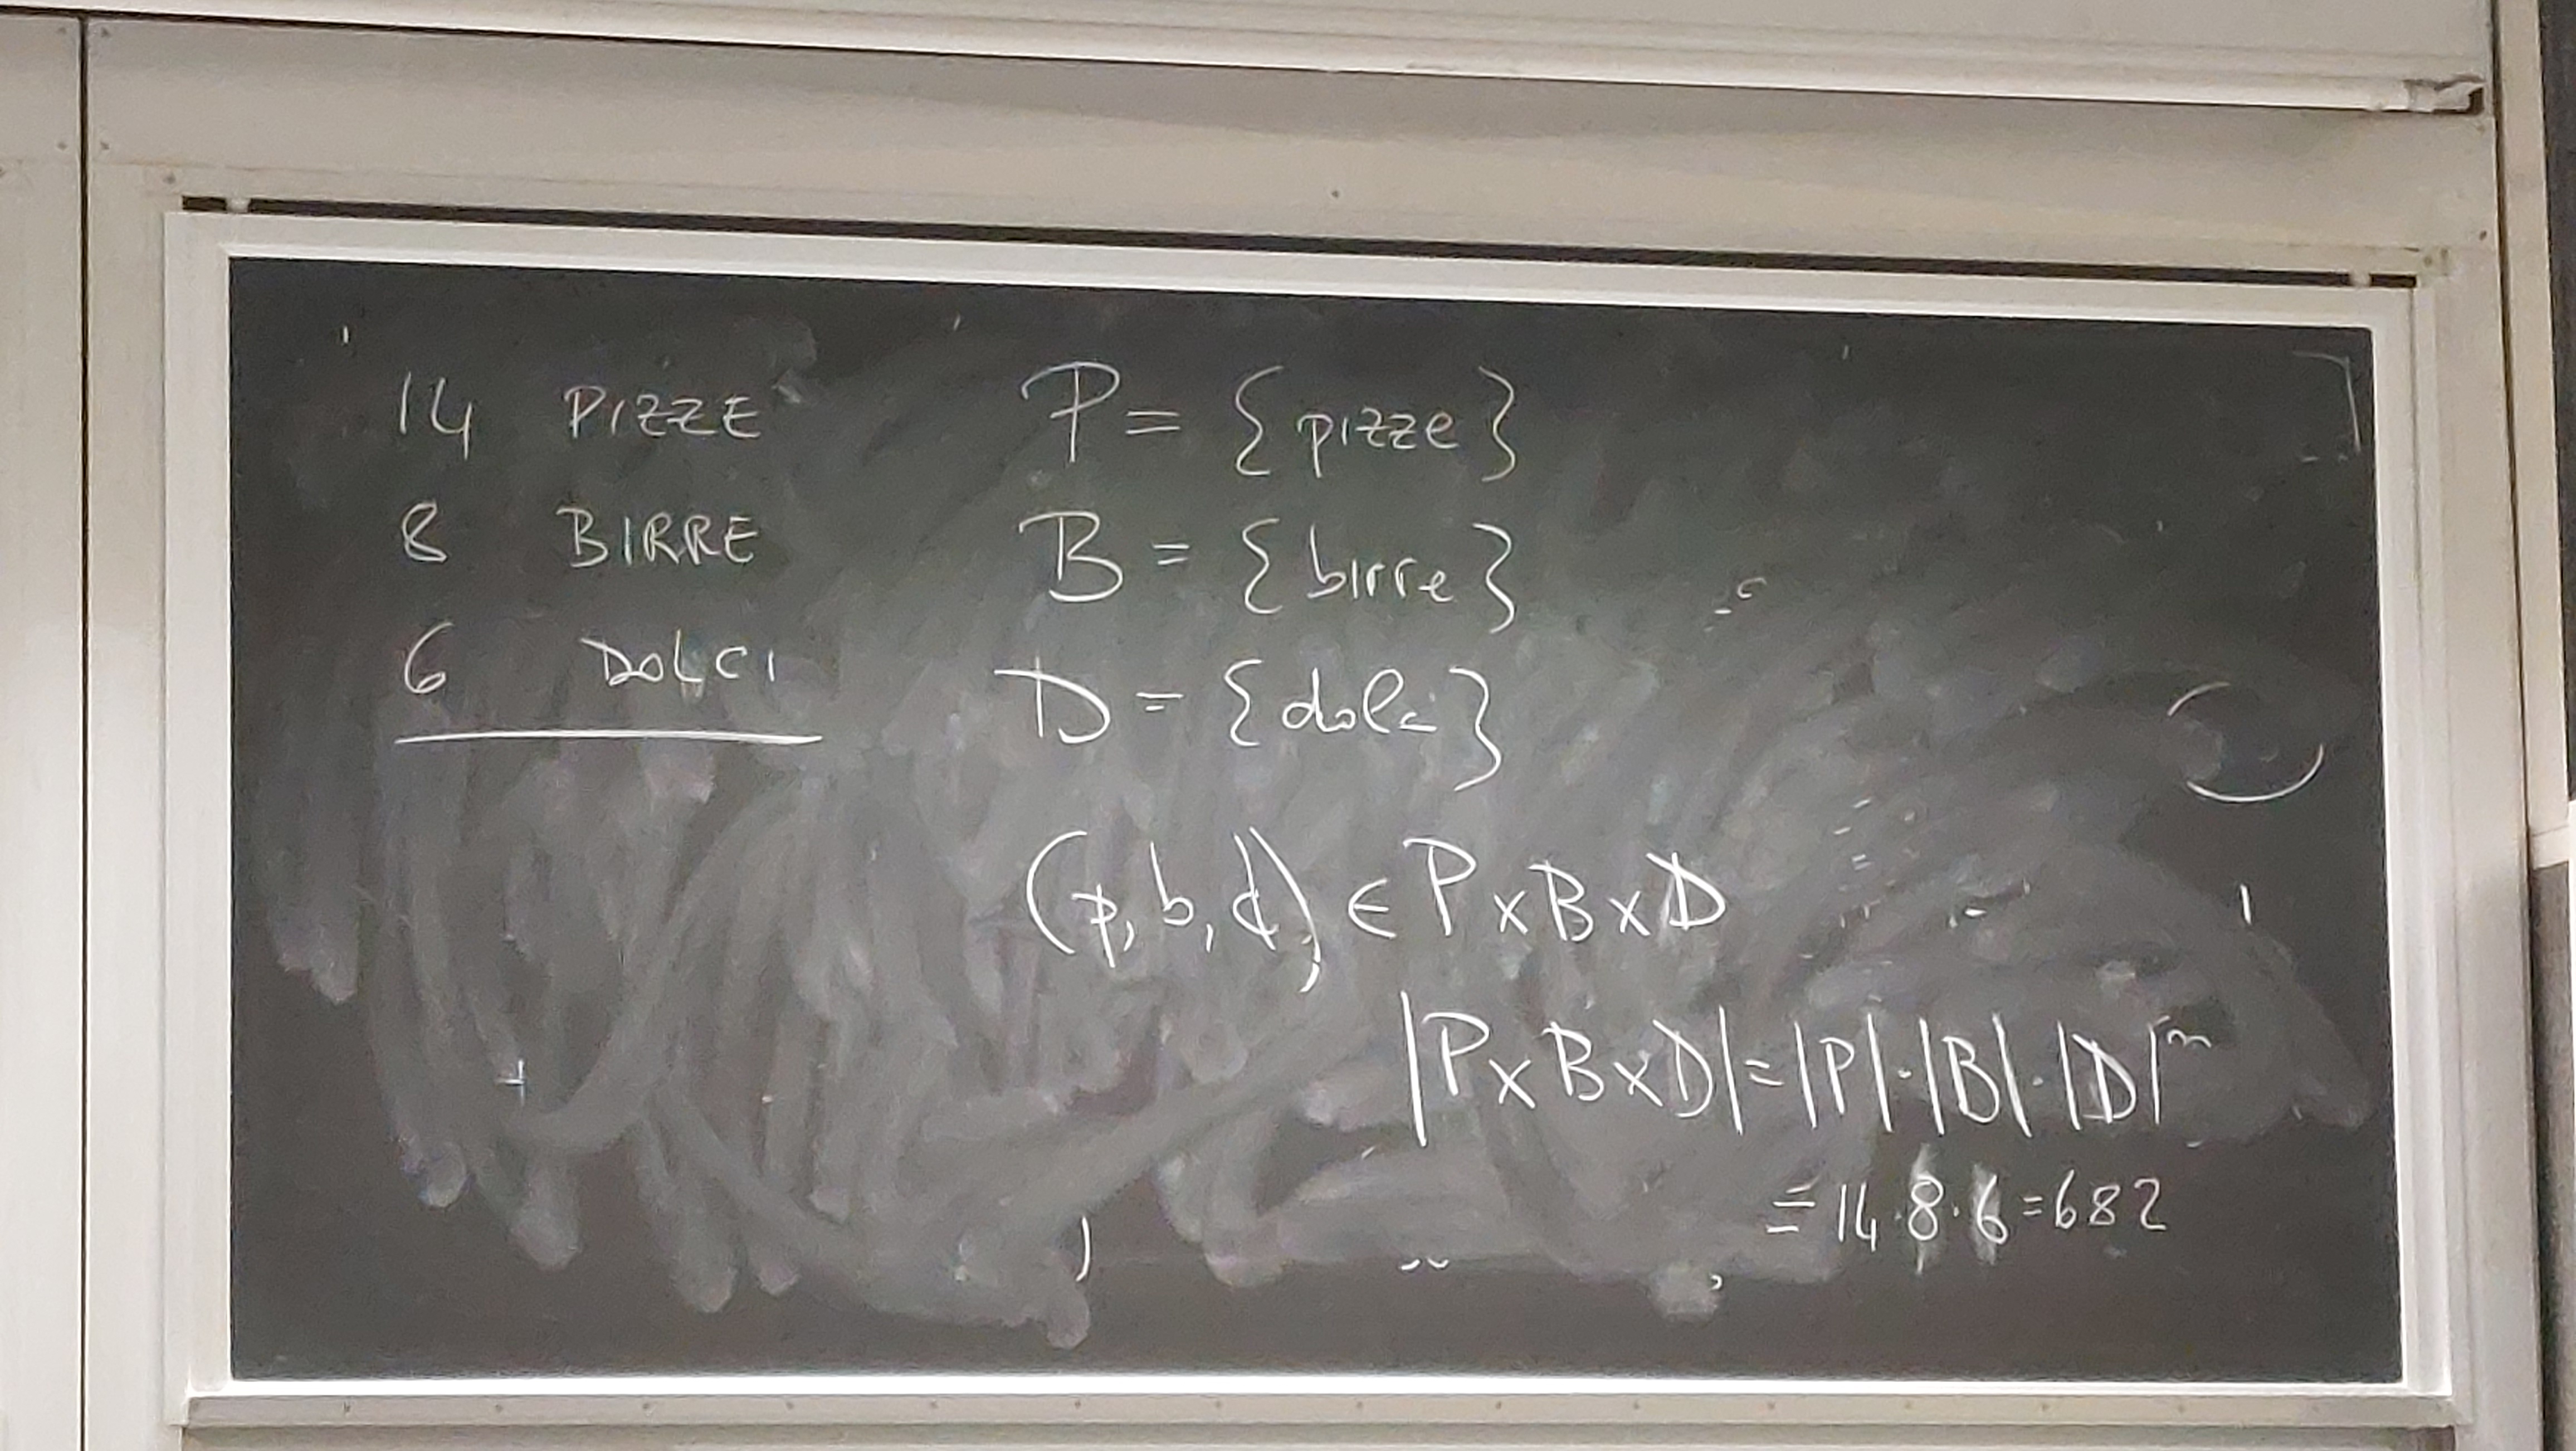 14 PIZZE
8 BIRRE
6 DOLCI
P = {pizze}
B = {birre}
D = {dolci}
(p, b, d) ∈ P x B x D
|P x B x D| = |P| · |B| · |D|
= 14 · 8 · 6 = 682